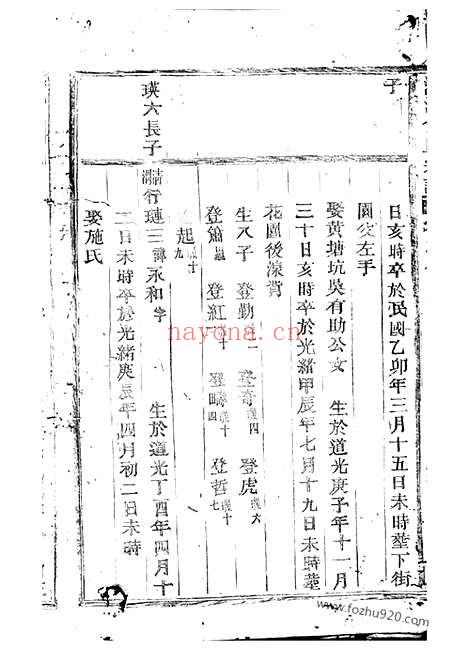 子
日亥時卒於民國乙卯年三月十五日未時塟下街
園父左手
娶黄塘坑吳有助公女 生於道光庚子年十一月
三十日亥時卒於光緒甲辰年七月十九日未時塟
花園後深背
生八子 登勤 登奇 登虎
登簫 登紅 登疇 登哲
起
瑛六長子
行璉三諱永和字 生於道光丁酉年四月十
二日未時卒於光緒庚辰年四月初二日未時
娶施氏
nayona.cn
www.fozhu920.com